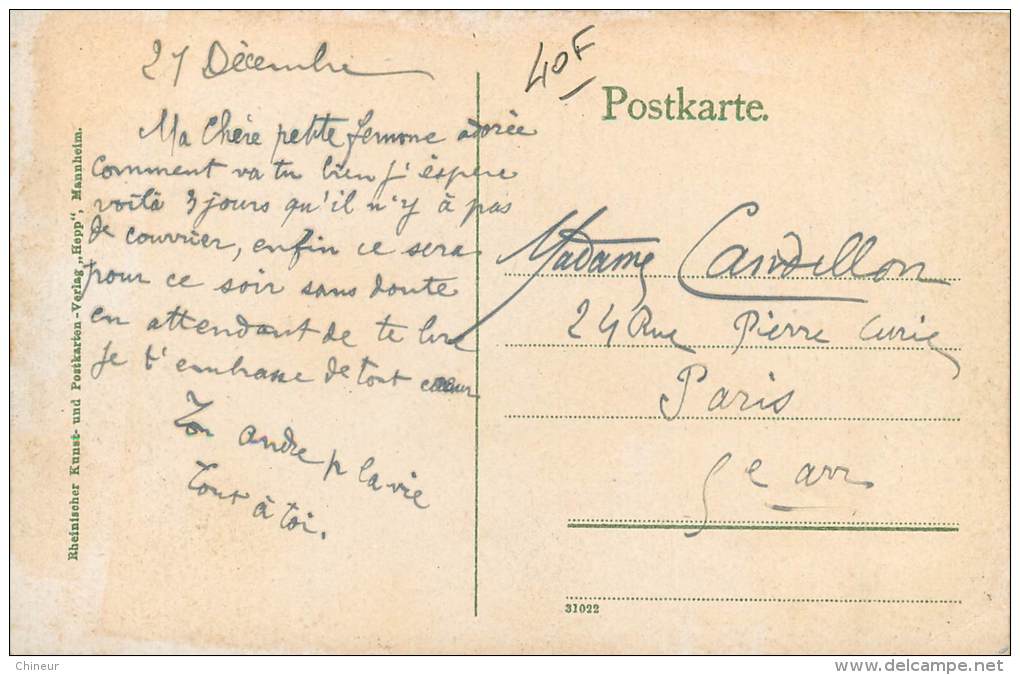 27 Décembre
Ma Chère petite femme adorée
comment va tu bien j'éspère
voilà 3 jours qu'il n'y à pas
de courrier, enfin ce sera
pour ce soir sans doute
en attendant de te lire
je t'embrasse de tout coeur
Ton andre p la vie
tout à toi.
40F
Postkarte.
Madame Candillon
24 Rue Pierre Curie
Paris
5e arr
31022
Rheinischer Kunst- und Postkarten-Verlag „Hepp", Mannheim.
Chineur
delcampe.net